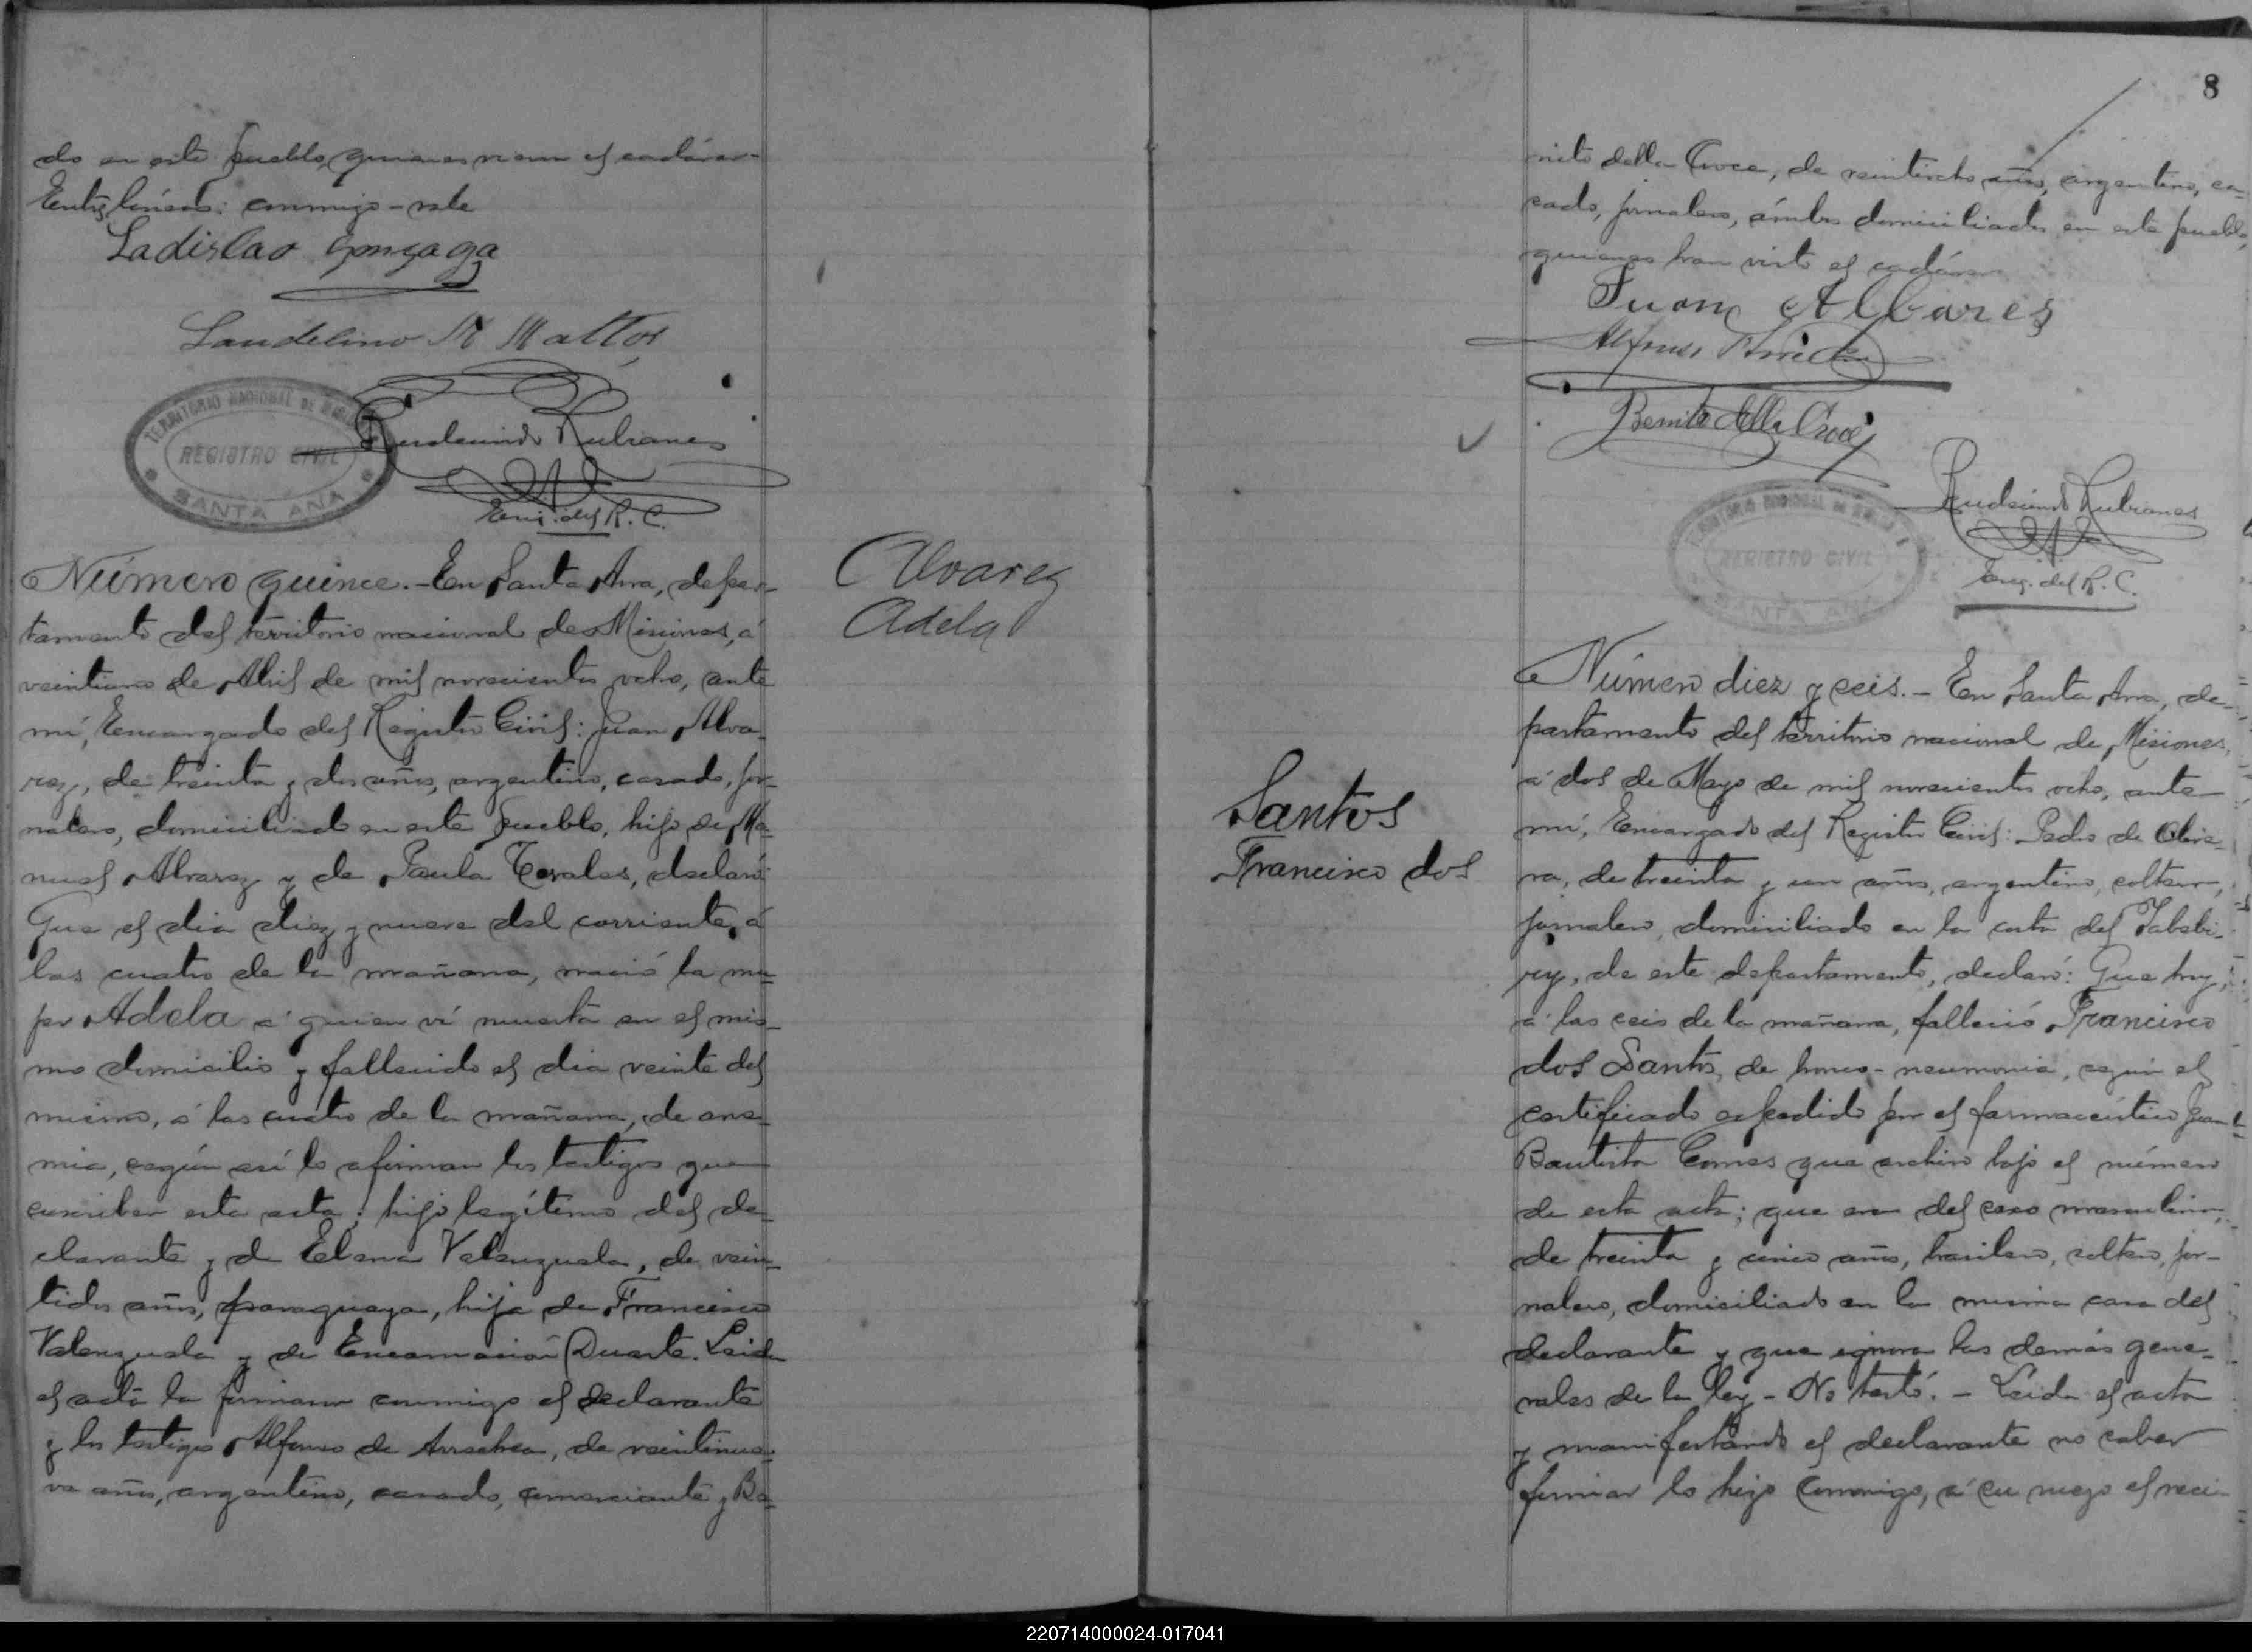 do en este pueblo, quienes vieron el cadáver.-
Entre líneas: conmigo - vale
Ladislao Gonzaga
Laudelino M Mattos
TERRITORIO NACIONAL DE MISIONES
REGISTRO CIVIL
SANTA ANA
Rudecindo Rubianes
Enc. del R. C.
Número quince.- En Santa Ana, depar-
tamento del territorio nacional de Misiones, á
veintiuno de Abril de mil novecientos ocho, ante
mí, Encargado del Registro Civil: Juan Alva-
rez, de treinta y dos años, argentino, casado, jor-
nalero, domiciliado en este pueblo, hijo de Ma-
nuel Alvarez y de Paula Cerales, declaró:
Que el dia diez y nueve del corriente, á
las cuatro de la mañana, nació la mu-
jer Adela á quien ví muerta en el mis-
mo domicilio y fallecido el dia veinte del
mismo, á las cuatro de la mañana, de ane-
mia, según así lo afirman los testigos que
suscriben esta acta; hijo legítimo del de-
clarante y de Elena Valenzuela, de vein-
tidos años, paraguaya, hija de Francisco
Valenzuela y de Encarnación Duarte. Leida
el acta la firmaron conmigo el declarante
y los testigos Alfonso de Arrechea, de veintinue-
ve años, argentino, casado, comerciante y Be-
Alvarez
Adela
8
nito della Croce, de veintiocho años, argentino, ca-
sado, jornalero, ámbos domiciliados en este pueblo,
quienes han visto el cadáver
Juan Albares
Alfonso Arrechea
Benito della Croce
Rudecindo Rubianes
TERRITORIO NACIONAL DE MISIONES
REGISTRO CIVIL
SANTA ANA
Enc. del R. C.
Santos
Francisco dos
Número diez y seis.- En Santa Ana, de-
partamento del territorio nacional de Misiones,
á dos de Mayo de mil novecientos ocho, ante
mí, Encargado del Registro Civil: Pedro de Olive-
ra, de treinta y un años, argentino, soltero,
jornalero, domiciliado en la costa del Yabebi-
ry, de este departamento, declaró: Que hoy,
á las seis de la mañana, falleció Francisco
dos Santos, de bronco-neumonia, según el
certificado expedido por el farmacéutico Juan
Bautista Comes que archivo bajo el número
de esta acta; que era del sexo masculino,
de treinta y cinco años, brasilero, soltero, jor-
nalero, domiciliado en la misma casa del
declarante y que ignora las demás gene-
rales de la ley - No testó.- Leida el acta
y manifestando el declarante no saber
firmar lo hizo conmigo, á su ruego el veci-
220714000024-017041